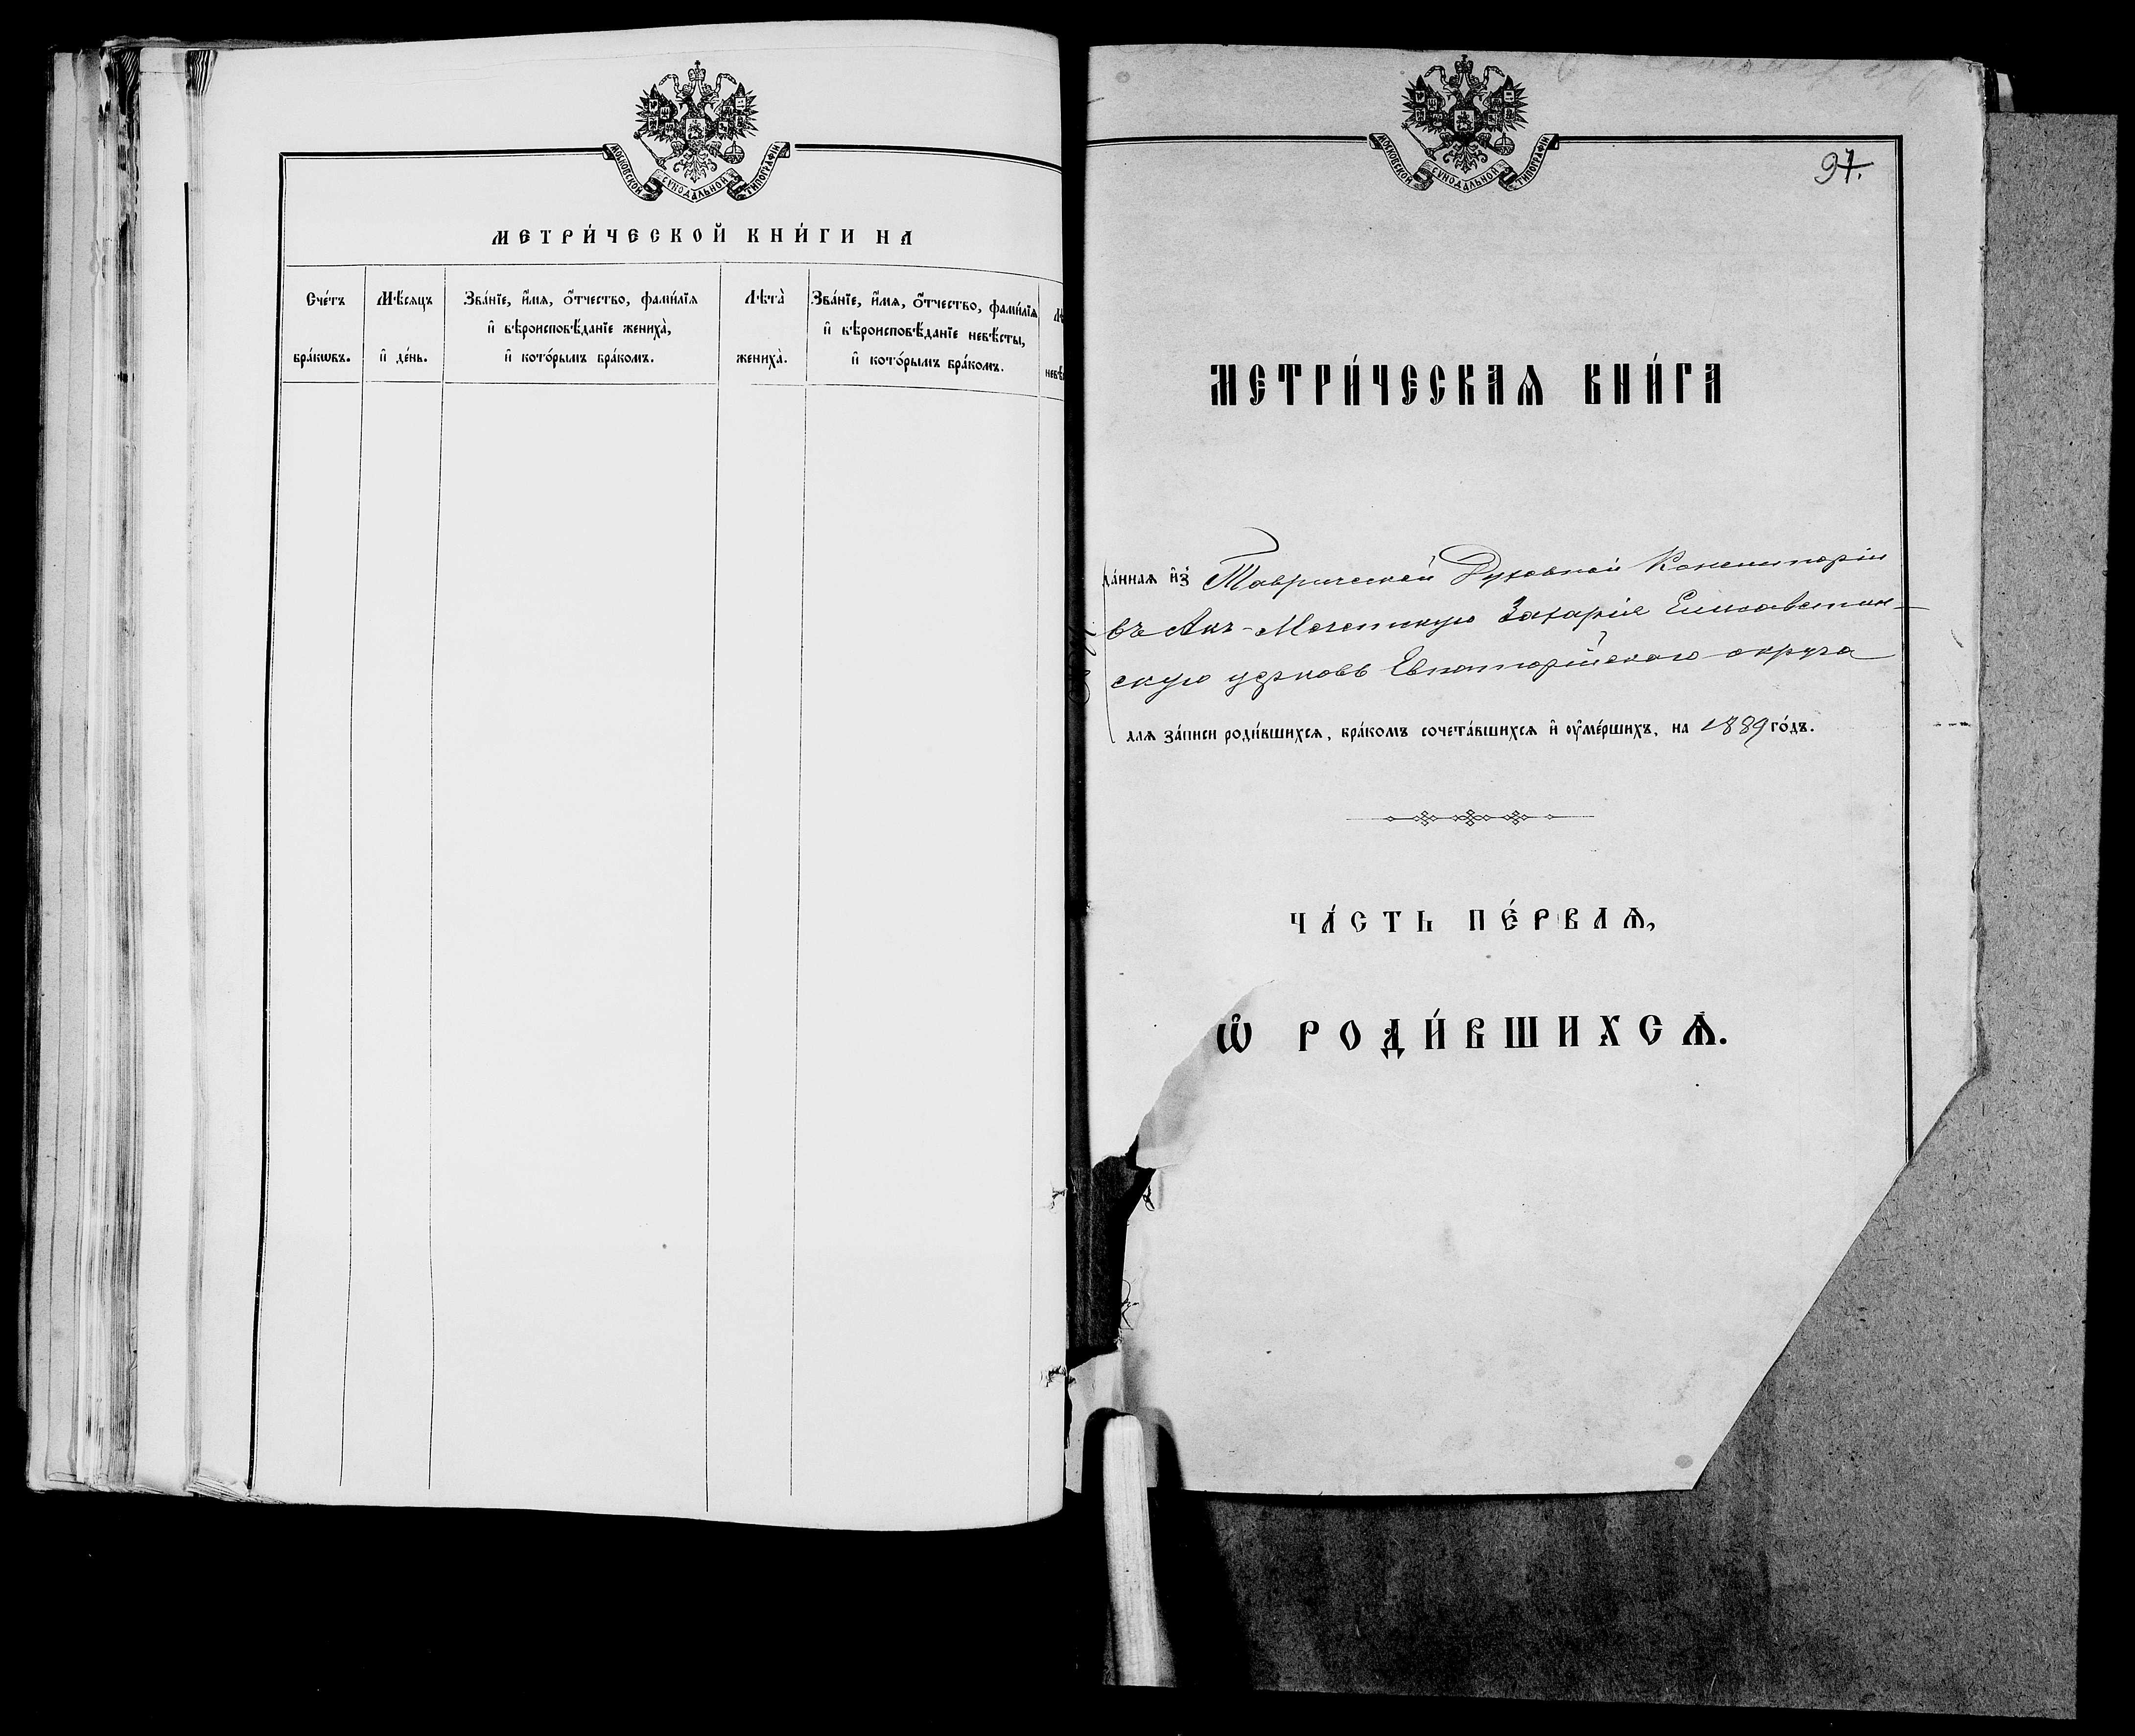 МОСКОВСКОЙ СѴНОДАЛЬНОЙ ТИПОГРАФІИ
МЕТРИ́ЧЕСКОЙ КНИ́ГИ НА
Сче́тъ бра́кѡвъ.
Мѣ́сяцъ и҆ де́нь.
Зва́нїе, и҆́мѧ, ѻ҆́тчество, фами́лїѧ
и҆ вѣроисповѣ́данїе жениха̀,
и҆ кото́рымъ бра́комъ.
Лѣта̀ жениха̀.
Зва́нїе, и҆́мѧ, ѻ҆́тчество, фами́лїѧ
и҆ вѣроисповѣ́данїе невѣ́сты,
и҆ кото́рымъ бра́комъ.
МОСКОВСКОЙ СѴНОДАЛЬНОЙ ТИПОГРАФІИ
МЕТРИ́ЧЕСКАѦ КНИ́ГА
да́ннаѧ и҆з̾ Таврической Духовной Консисторіи
въ Акъ-Мечетскую Захаріе Елисаветин-
скую церковь Евпаторійскаго округа
длѧ за́писи роди́вшихсѧ, бра́комъ сочета́вшихсѧ и҆ ᲂу҆ме́ршихъ, на 1889 го́дъ.
ЧА́СТЬ ПЕ́РВАѦ,
Ѡ҆ РОДИ́ВШИХСѦ.